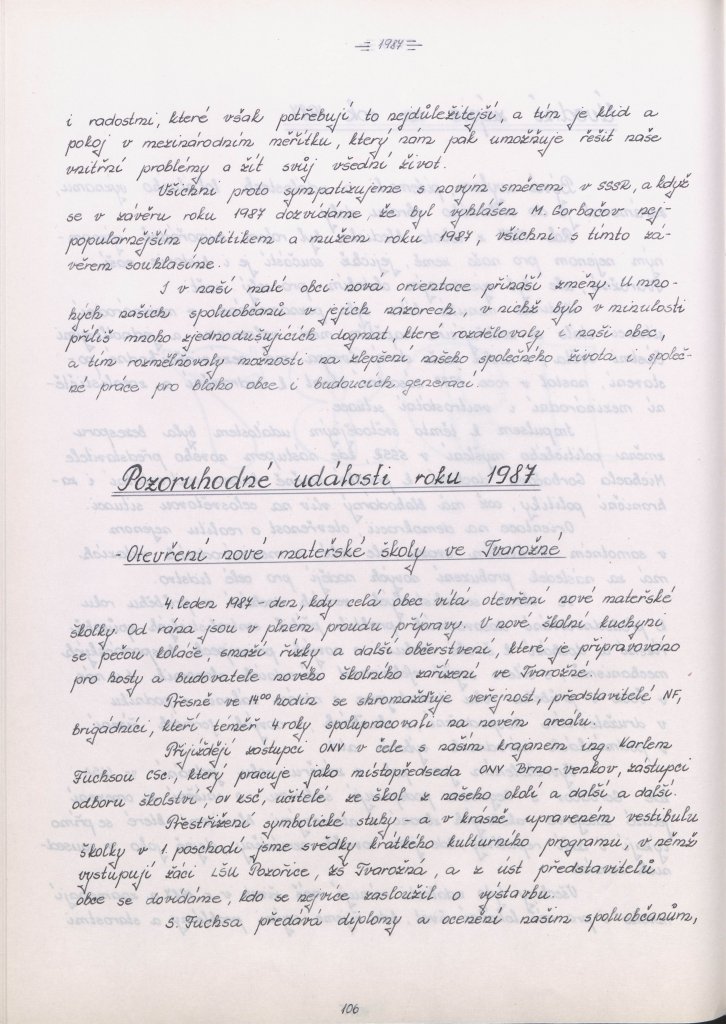 1987
i radostmi, které však potřebují to nejdůležitější, a tím je klid a
pokoj v mezinárodním měřítku, který nám pak umožňuje řešit naše
vnitřní problémy a žít svůj všední život.
Všichni proto sympatizujeme s novým směrem v SSSR, a když
se v závěru roku 1987 dozvídáme že byl vyhlášen M. Gorbačov nej-
populárnějším politikem a mužem roku 1987, všichni s tímto zá-
věrem souhlasíme.
I v naší malé obci nová orientace přináší změny. U mno-
hých našich spoluobčanů v jejich názorech, v nichž bylo v minulosti
příliš mnoho zjednodušujících dogmat, které rozdělovaly i naši obec,
a tím rozmělňovaly možnosti na zlepšení našeho společného života i společ-
né práce pro blaho obce i budoucích generací.
Pozoruhodné události roku 1987
- Otevření nové mateřské školy ve Tvarožné
4. leden 1987 - den, kdy celá obec vítá otevření nové mateřské
školky. Od rána jsou v plném proudu přípravy. V nové školní kuchyni
se pečou koláče, smaží řízky a další občerstvení, které je připravováno
pro hosty a budovatele nového školního zařízení ve Tvarožné.
Přesně ve 14⁰⁰ hodin se shromažďuje veřejnost, představitelé NF,
brigádníci, kteří téměř 4 roky spolupracovali na novém areálu.
Přijíždějí zástupci ONV v čele s naším krajanem ing. Karlem
Fuchsou CSc., který pracuje jako místopředseda ONV Brno-venkov, zástupci
odboru školství, OV KSČ, učitelé ze škol z našeho okolí a další a další.
Přestřižení symbolické stuhy - a v krásně upraveném vestibulu
školky v 1. poschodí jsme svědky krátkého kulturního programu, v němž
vystupují žáci LŠU Pozořice, ZŠ Tvarožná, a z úst představitelů
obce se dovídáme, kdo se nejvíce zasloužil o výstavbu.
S. Fuchsa předává diplomy a ocenění našim spoluobčanům,
106